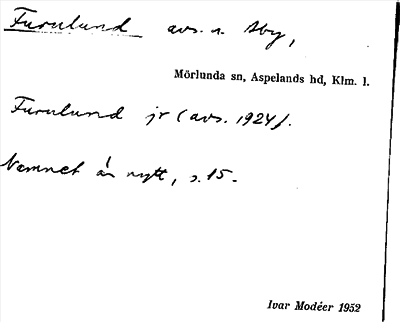 Furulund avs. n. Åby,
Mörlunda sn, Aspelands hd, Klm. l.
Furulund jr (avs. 1924).
Namnet är nytt, s. 15.
Ivar Modéer 1952